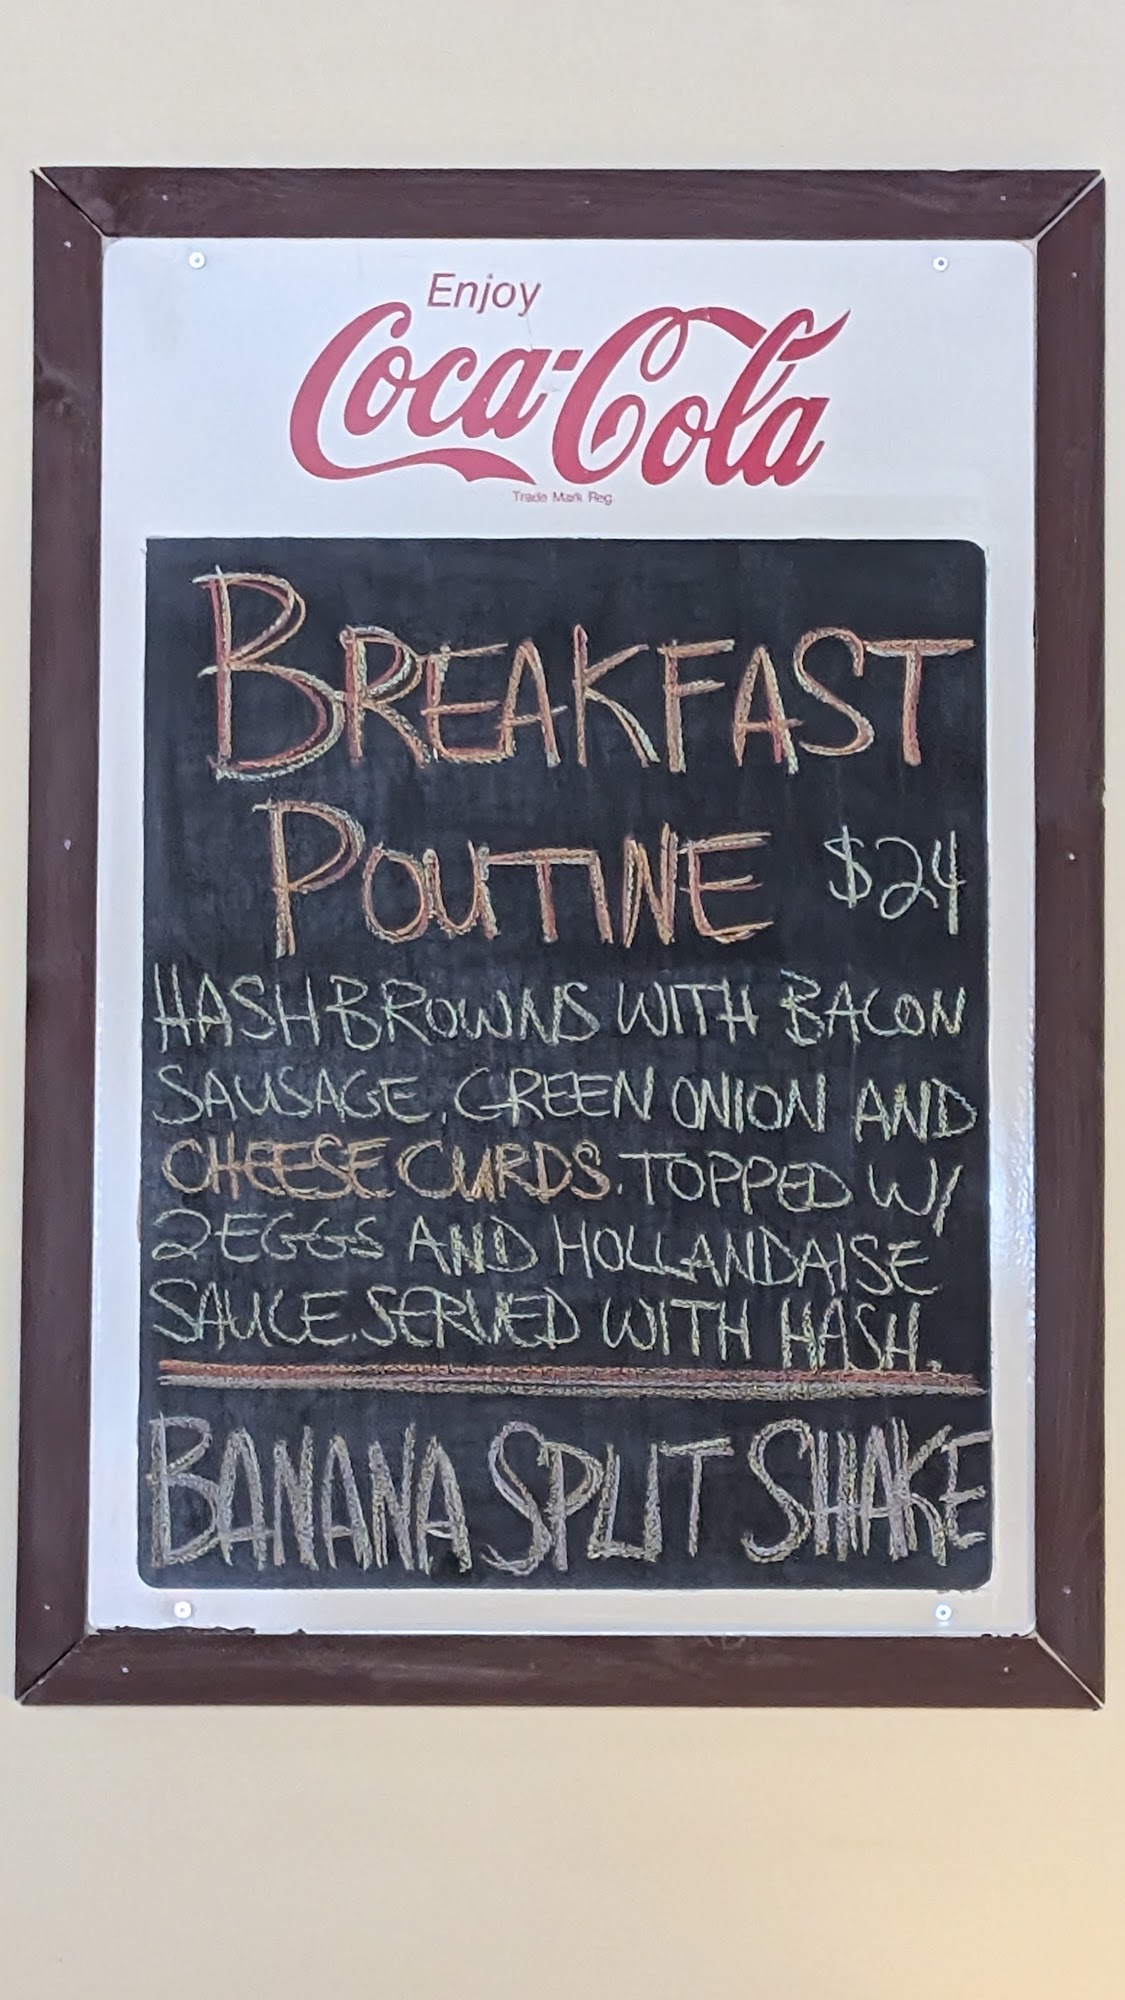 Enjoy
Coca-Cola
Trade Mark Reg
BREAKFAST
POUTINE $24
HASHBROWNS WITH BACON
SAUSAGE, GREEN ONION AND
CHEESE CURDS. TOPPED W/
2 EGGS AND HOLLANDAISE
SAUCE. SERVED WITH HASH.
BANANA SPLIT SHAKE